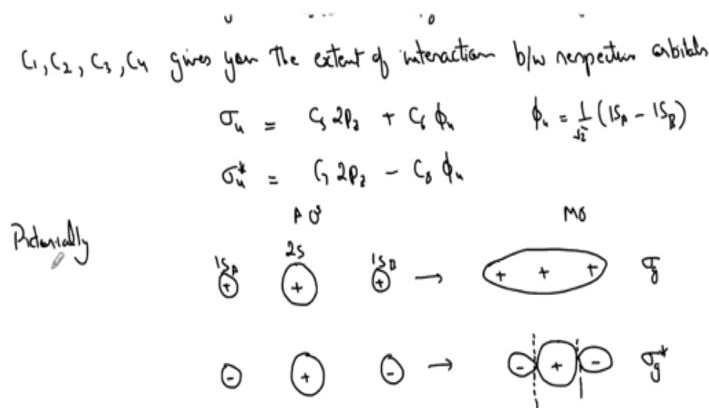 C₁, C₂, C₃, C₄ gives you the extent of interaction b/w respective orbitals
σᵤ = C₅ 2P_z + C₆ ϕᵤ    ϕᵤ = 1/√2 (1S_A − 1S_B)
σᵤ* = C₇ 2P_z − C₈ ϕᵤ
AO's    MO
Pictorially
1S_A 2S 1S_B
+ + + → + + + σg
− + − → − + − σg*